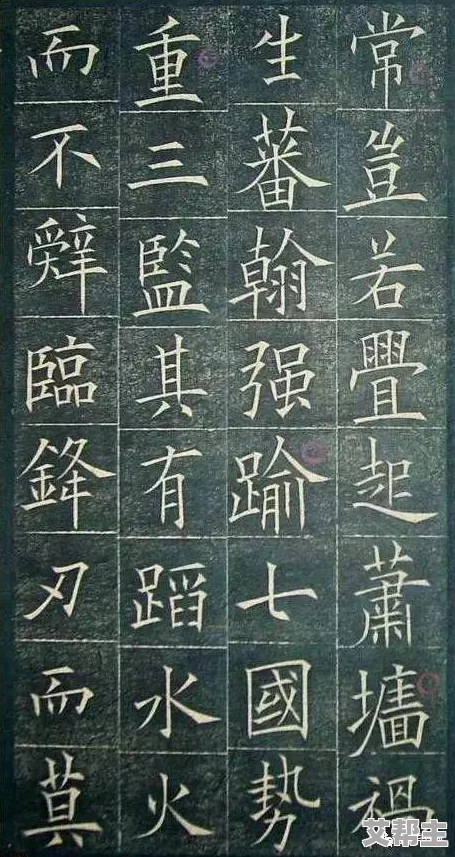 常豈若疊起蕭墻禍
生蕃翰强踰七國勢
重三監其有蹈水火
而不辤臨鋒刃而莫
艾帮主